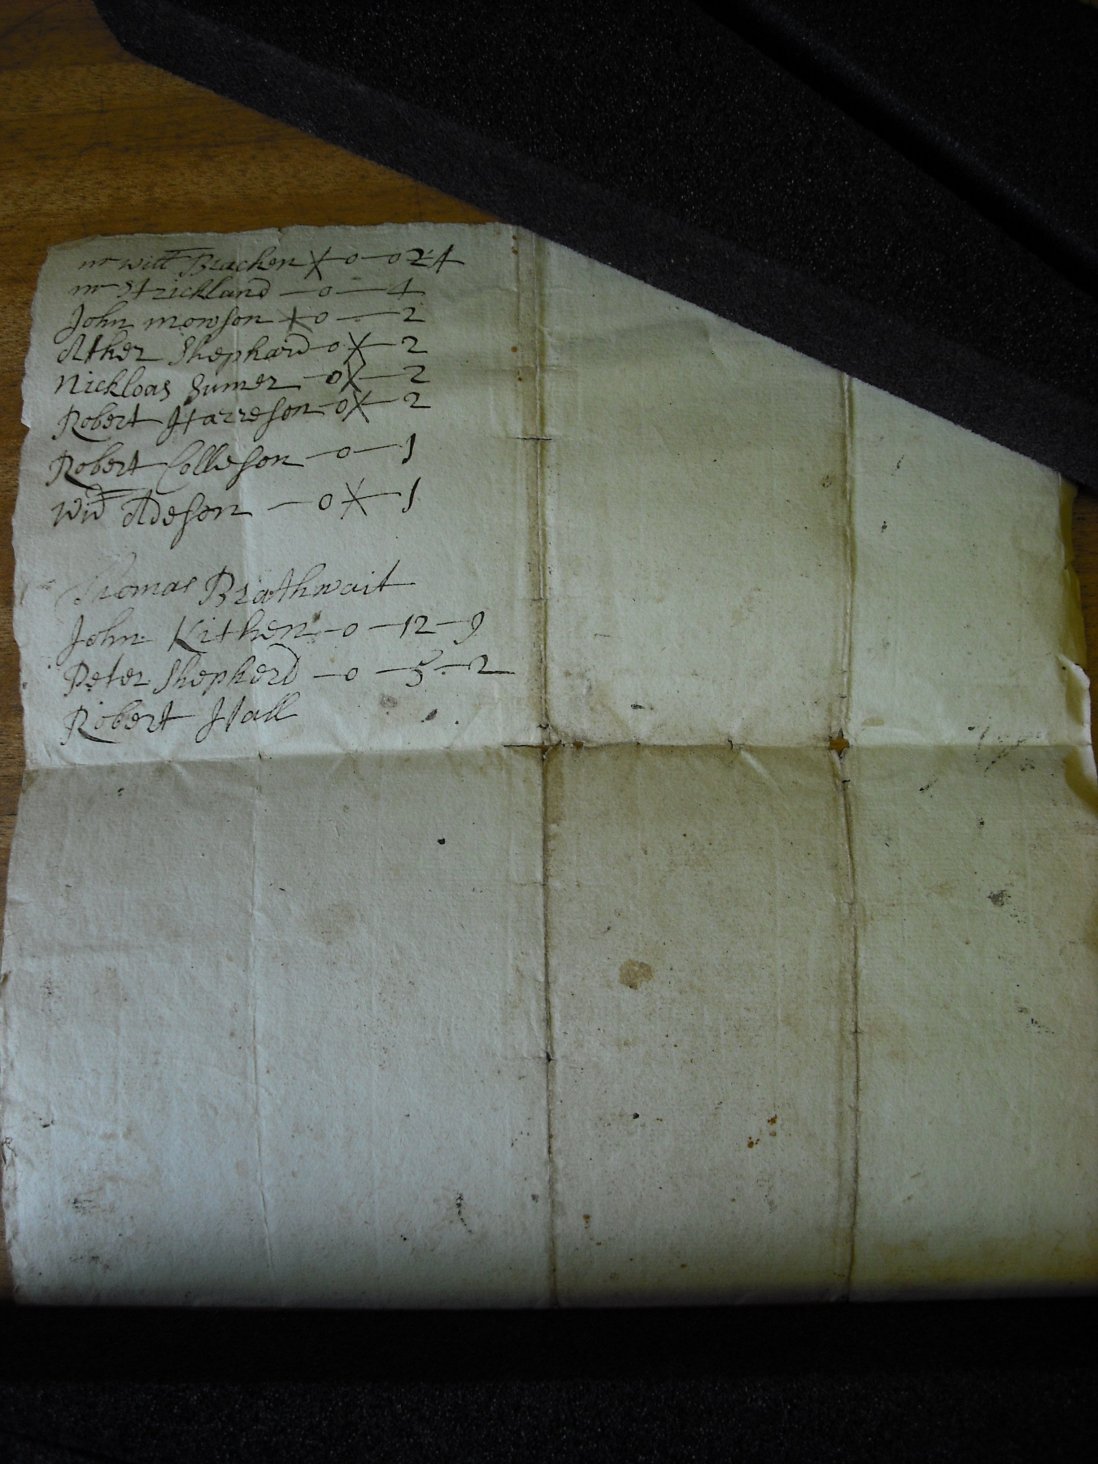 mr Will Bracken X o — o 24
mr Strickland — o — 4
John mowson X o — 2
Ather Shephard o X — 2
Nickloas Sumer — o X — 2
Robert Harreson — o X — 2
Robert Colleson — o — 1
Wid Adeson — o X — 1
Thomas Brathwait
John Kithen — o — 12 — 9
Peter Shepherd — o — 5 — 2
Robert Hall